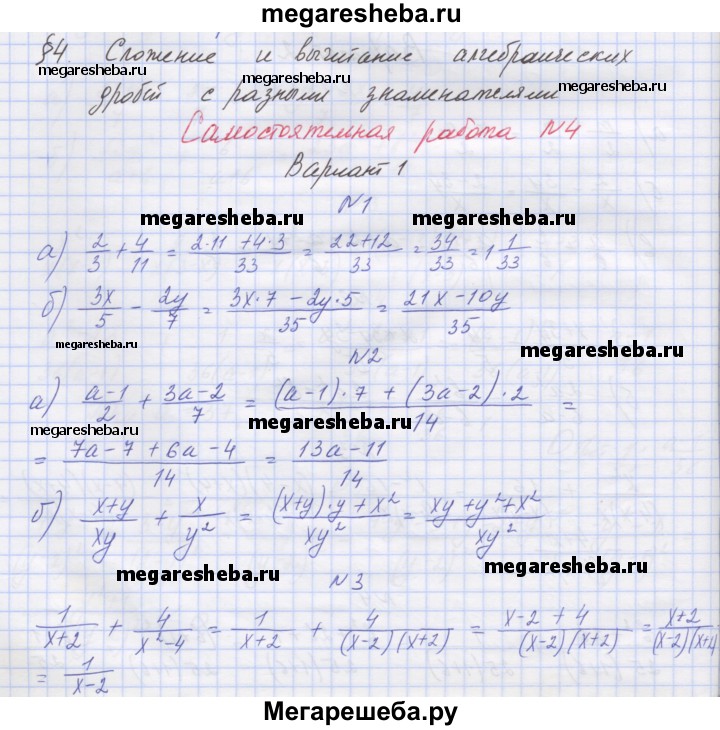 megaresheba.ru
§4 Сложение и вычитание алгебраических
megaresheba.ru
megaresheba.ru
дробей с разными знаменателями
megaresheba.ru
Самостоятельная работа №4
Вариант 1
№1
megaresheba.ru
megaresheba.ru
а) 2/3 + 4/11 = (2·11 + 4·3)/33 = (22+12)/33 = 34/33 = 1 1/33
б) 3x/5 − 2y/7 = (3x·7 − 2y·5)/35 = (21x − 10y)/35
megaresheba.ru
№2
megaresheba.ru
а) (a−1)/2 + (3a−2)/7 = ((a−1)·7 + (3a−2)·2)/14 =
megaresheba.ru
megaresheba.ru
= (7a−7+6a−4)/14 = (13a−11)/14
megaresheba.ru
б) (x+y)/xy + x/y² = ((x+y)·y + x²)/xy² = (xy+y²+x²)/xy²
megaresheba.ru
megaresheba.ru
№3
1/(x+2) + 4/(x²−4) = 1/(x+2) + 4/((x−2)(x+2)) = (x−2+4)/((x−2)(x+2)) = (x+2)/((x−2)(x+
= 1/(x−2)
Мегарешеба.ру